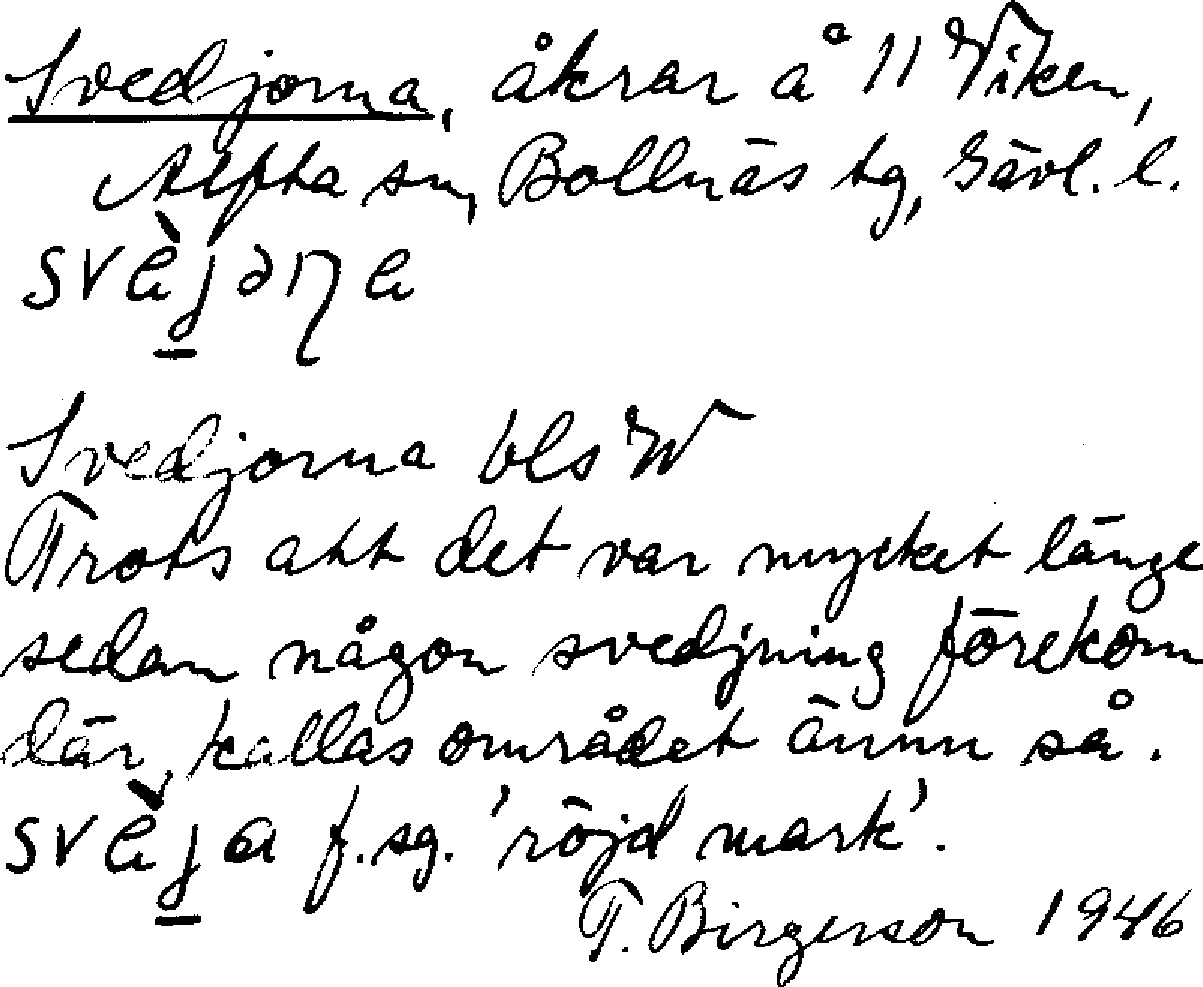 Svedjorna, åkrar å 11 Viken,
Alfta sn, Bollnäs tg, Gävl. l.
svèjəṇa
Svedjorna bls W
Trots att det var mycket länge
sedan någon svedjning förekom
där, kallas området ännu så.
svèja f.sg. 'röjd mark'.
T. Birgerson 1946